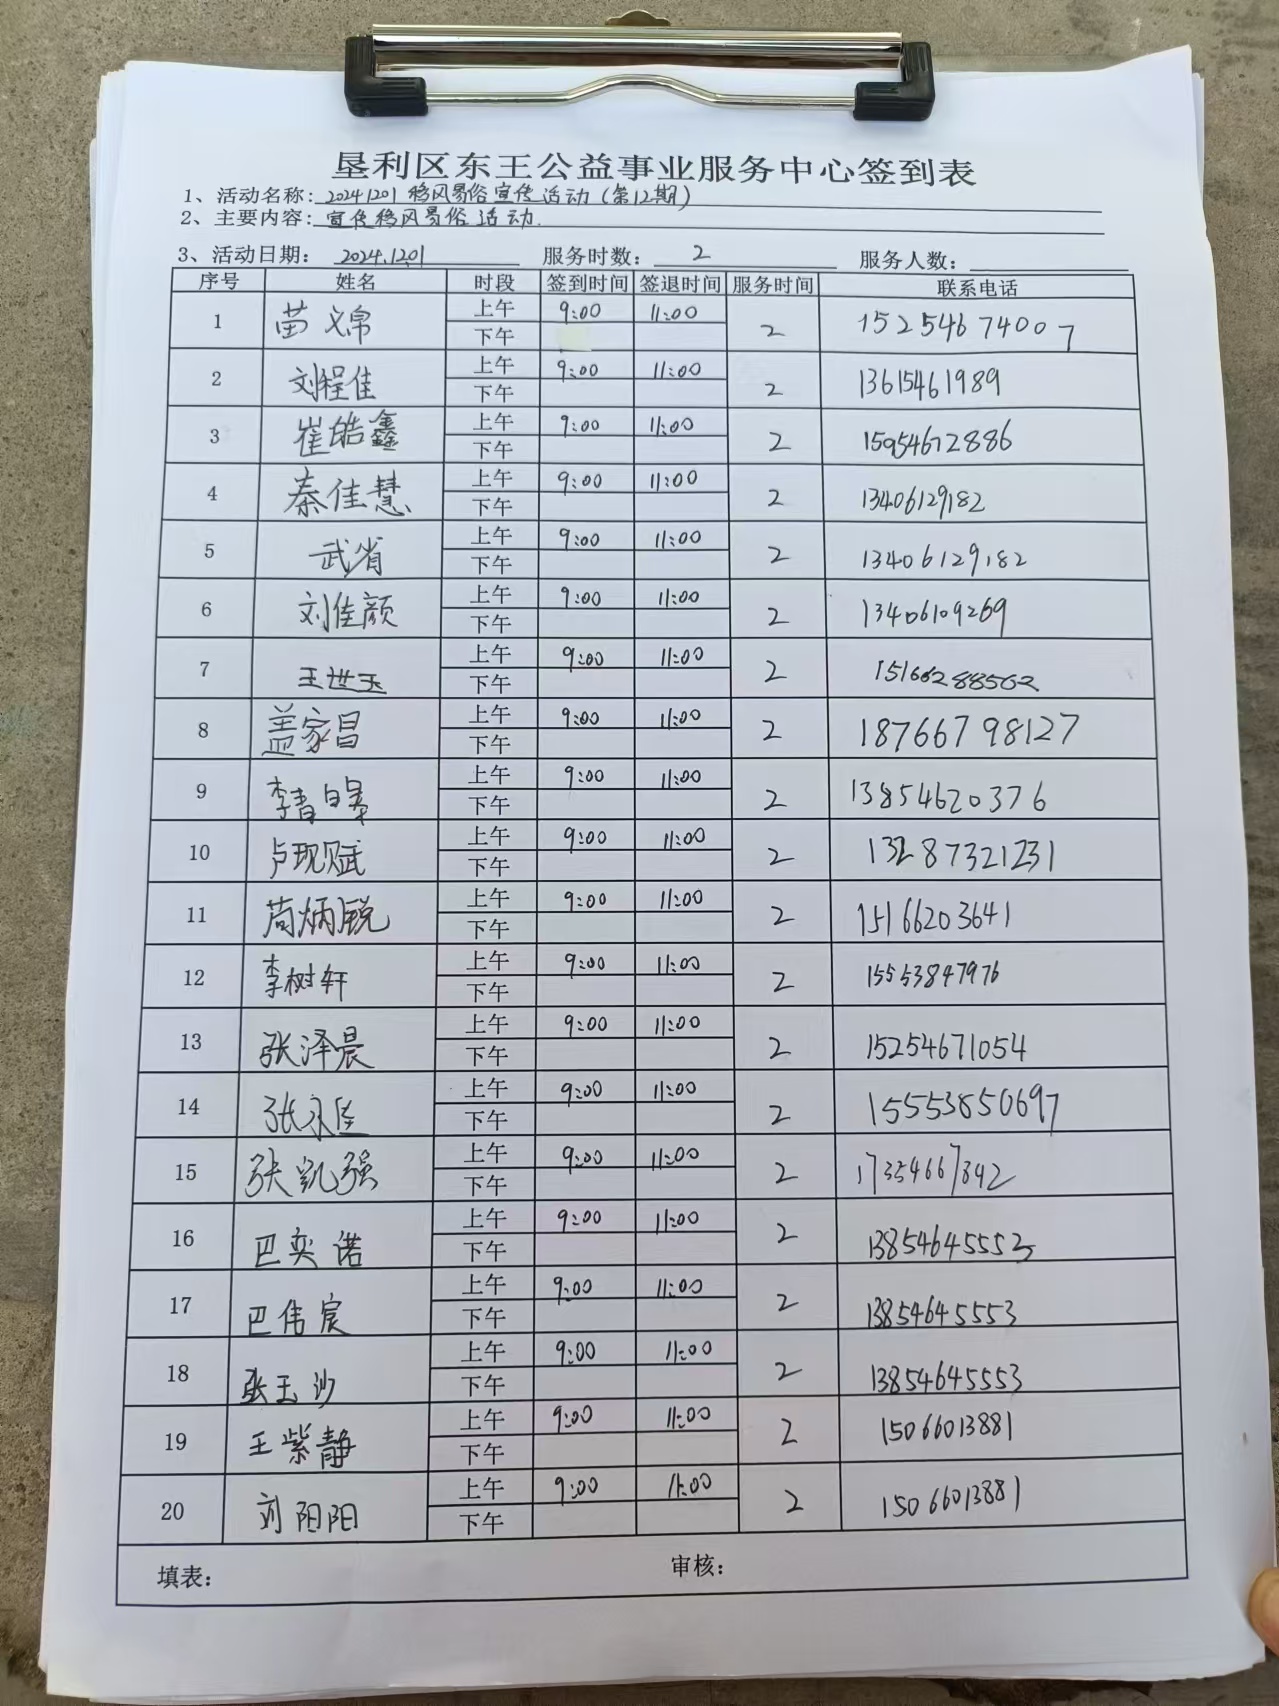 垦利区东王公益事业服务中心签到表
1、活动名称: 20241201 移风易俗宣传活动(第12期)
2、主要内容: 宣传移风易俗活动.
3、活动日期: 2024.1201 服务时数: 2 服务人数:
序号 姓名 时段 签到时间 签退时间 服务时间 联系电话
1 苗文锦 上午 9:00 11:00 2 15254674007
下午
2 刘程佳 上午 9:00 11:00 2 13615461989
下午
3 崔皓鑫 上午 9:00 11:00 2 15954672886
下午
4 秦佳慧 上午 9:00 11:00 2 13406129182
下午
5 武省 上午 9:00 11:00 2 13406129182
下午
6 刘佳颜 上午 9:00 11:00 2 13406109269
下午
7 王世玉 上午 9:00 11:00 2 15166288562
下午
8 盖家昌 上午 9:00 11:00 2 18766798127
下午
9 李春皞 上午 9:00 11:00 2 13854620376
下午
10 卢现赋 上午 9:00 11:00 2 13287321231
下午
11 苟炳锐 上午 9:00 11:00 2 15166203641
下午
12 李树轩 上午 9:00 11:00 2 15553847976
下午
13 张泽晨 上午 9:00 11:00 2 15254671054
下午
14 张永佳 上午 9:00 11:00 2 15553850697
下午
15 张凯强 上午 9:00 11:00 2 17354667842
下午
16 巴奕诺 上午 9:00 11:00 2 13854645553
下午
17 巴伟宸 上午 9:00 11:00 2 13854645553
下午
18 张玉沙 上午 9:00 11:00 2 13854645553
下午
19 王紫静 上午 9:00 11:00 2 15066013881
下午
20 刘阳阳 上午 9:00 11:00 2 15066013881
下午
填表: 审核: